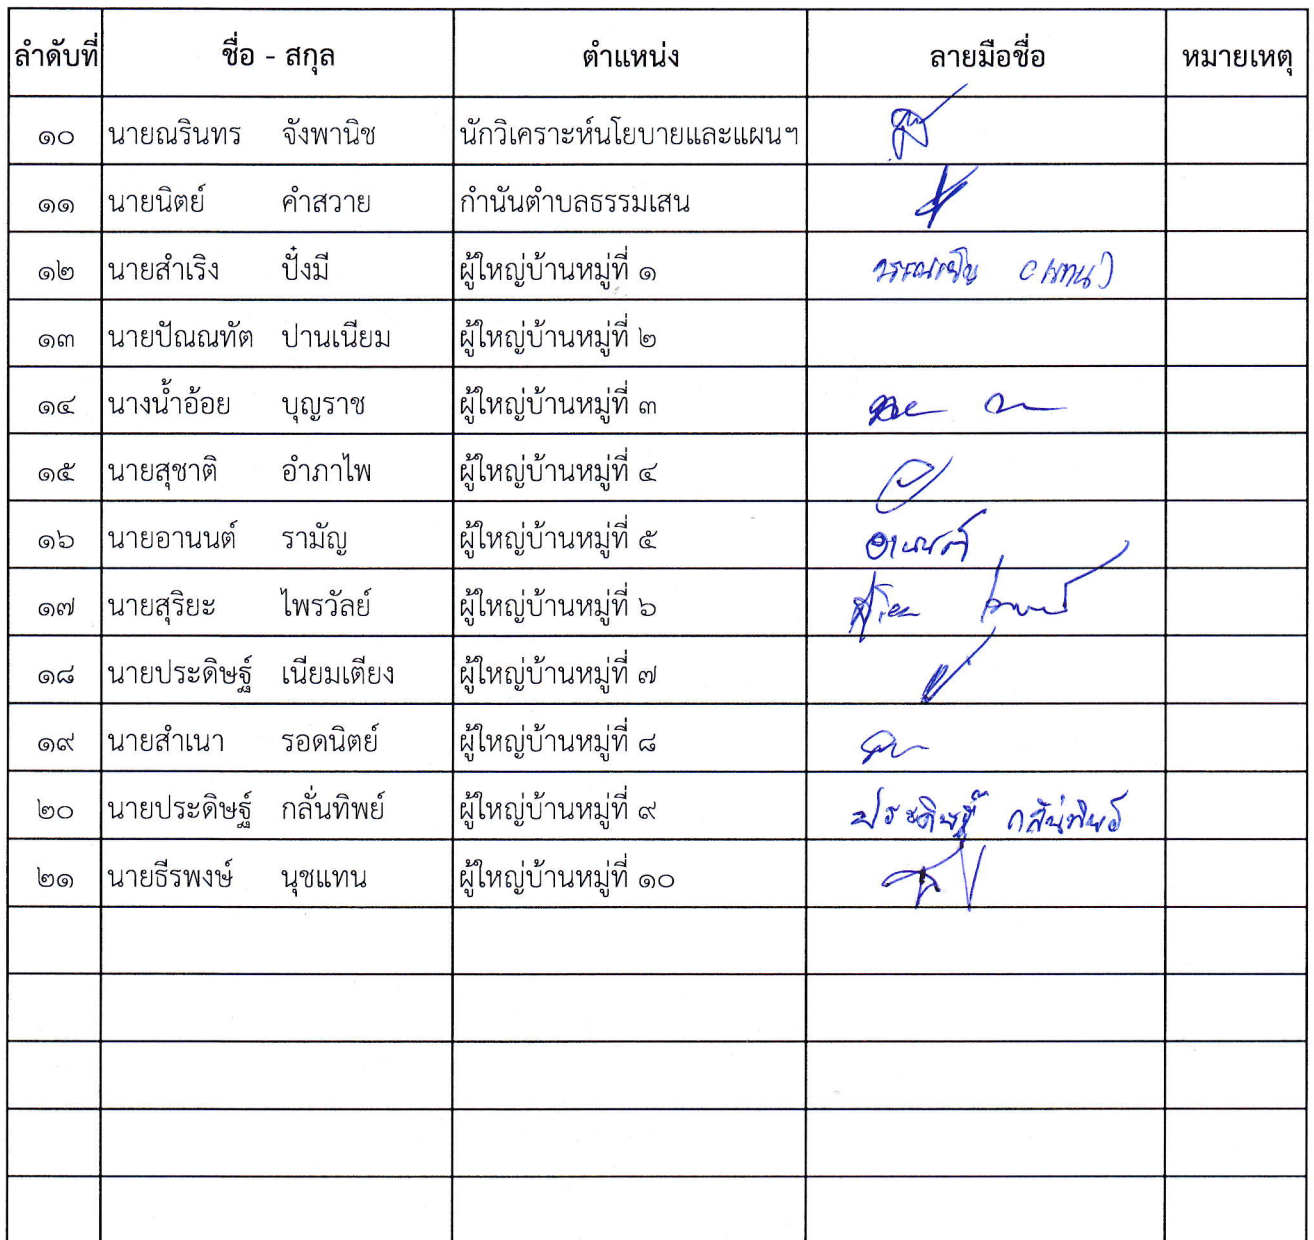 ลำดับที่ ชื่อ - สกุล ตำแหน่ง ลายมือชื่อ หมายเหตุ
๑๐ นายณรินทร จังพานิช นักวิเคราะห์นโยบายและแผนฯ
๑๑ นายนิตย์ คำสวาย กำนันตำบลธรรมเสน
๑๒ นายสำเริง ปั๋งมี ผู้ใหญ่บ้านหมู่ที่ ๑ (แทน)
๑๓ นายปัณณทัต ปานเนียม ผู้ใหญ่บ้านหมู่ที่ ๒
๑๔ นางน้ำอ้อย บุญราช ผู้ใหญ่บ้านหมู่ที่ ๓
๑๕ นายสุชาติ อำภาไพ ผู้ใหญ่บ้านหมู่ที่ ๔
๑๖ นายอานนต์ รามัญ ผู้ใหญ่บ้านหมู่ที่ ๕ อานนต์
๑๗ นายสุริยะ ไพรวัลย์ ผู้ใหญ่บ้านหมู่ที่ ๖
๑๘ นายประดิษฐ์ เนียมเตียง ผู้ใหญ่บ้านหมู่ที่ ๗
๑๙ นายสำเนา รอดนิตย์ ผู้ใหญ่บ้านหมู่ที่ ๘
๒๐ นายประดิษฐ์ กลั่นทิพย์ ผู้ใหญ่บ้านหมู่ที่ ๙ ประดิษฐ์ กลั่นทิพย์
๒๑ นายธีรพงษ์ นุชแทน ผู้ใหญ่บ้านหมู่ที่ ๑๐